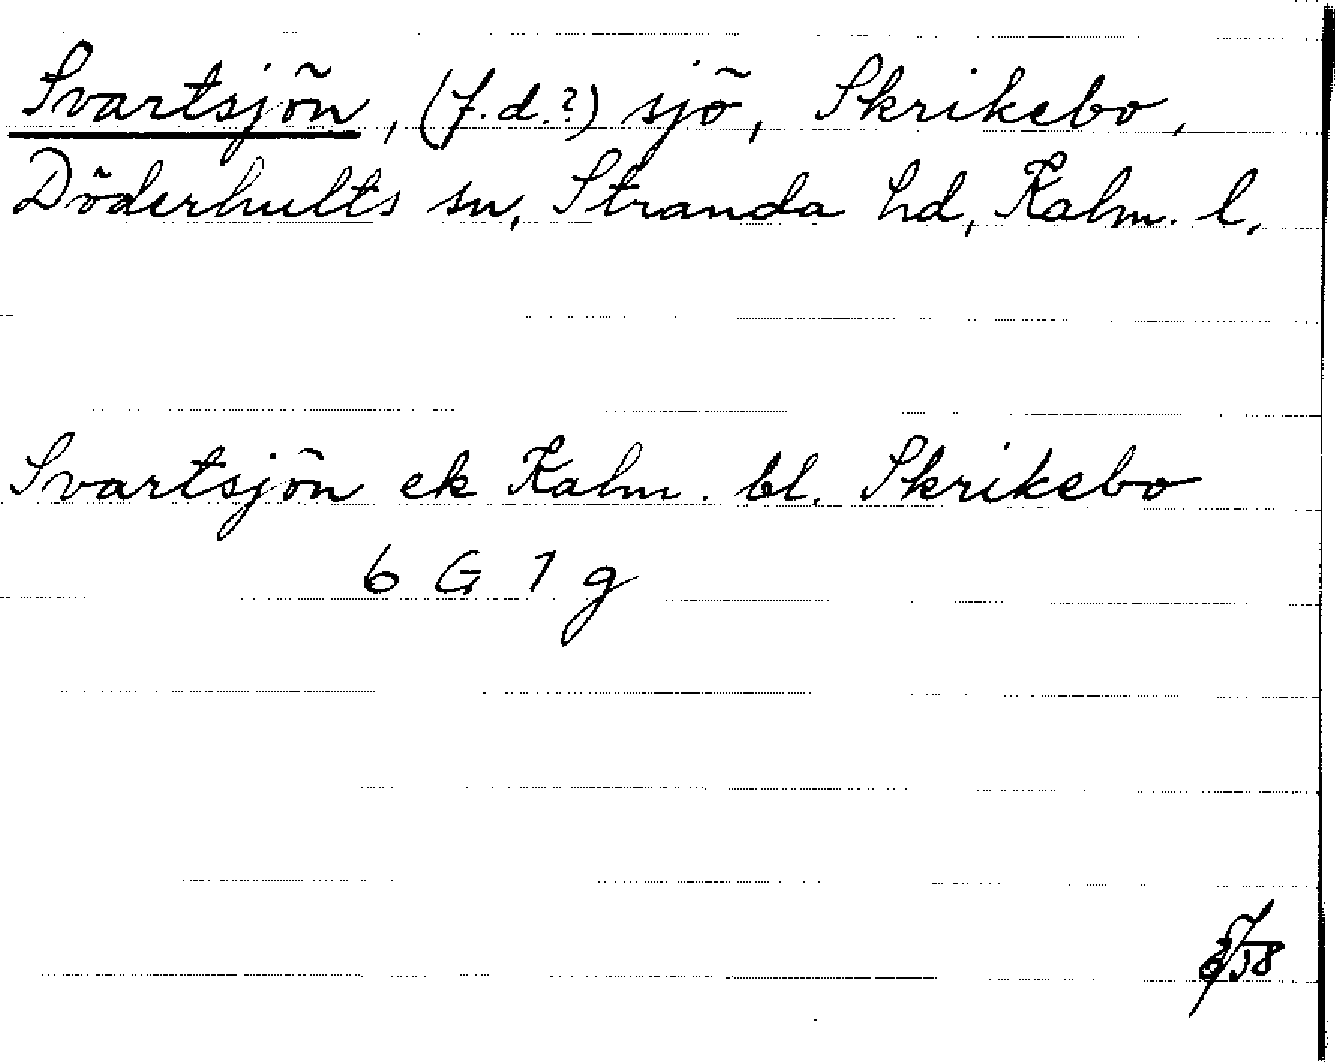 Svartsjön, (f.d.?) sjö, Skrikebo,
Döderhults sn, Stranda hd, Kalm. l.
Svartsjön ek Kalm. bl. Skrikebo
6 G 1 g